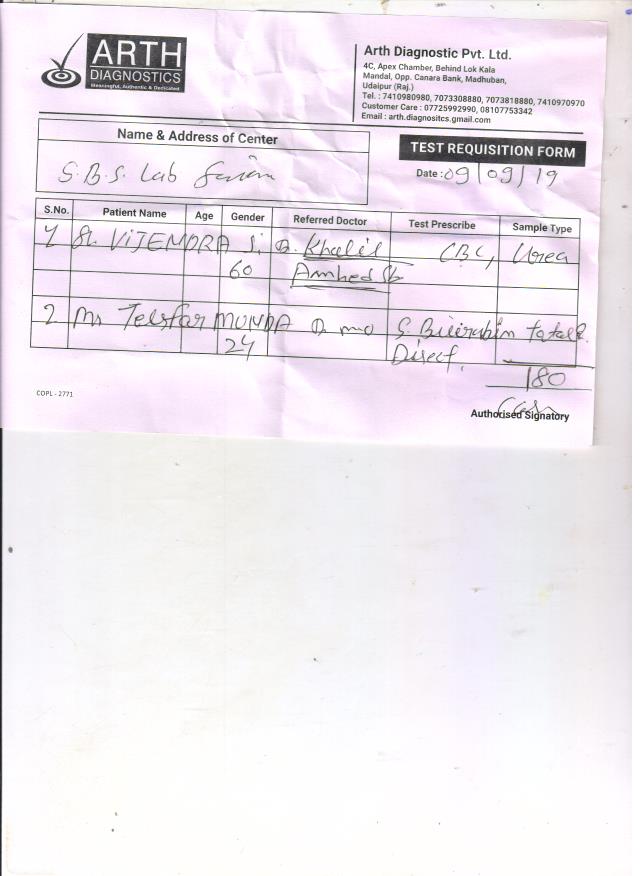 ARTH
DIAGNOSTICS
Meaningful, Authentic & Dedicated
Arth Diagnostic Pvt. Ltd.
4C, Apex Chamber, Behind Lok Kala
Mandal, Opp. Canara Bank, Madhuban,
Udaipur (Raj.)
Tel. : 7410980980, 7073308880, 7073818880, 7410970970
Customer Care : 07725992990, 08107753342
Email : arth.diagnositcs.gmail.com
Name & Address of Center
TEST REQUISITION FORM
S.B.S. Lab
Date : 09/09/19
S.No. Patient Name Age Gender Referred Doctor Test Prescribe Sample Type
1 VIJENDRA S. D. Khalil CBC, Urea
60 Amhed Sb
2 Mr Telsfar MUNDA D. mo S. Total &
24 Direct.
180
Cash
COPL - 2771
Authorised Signatory